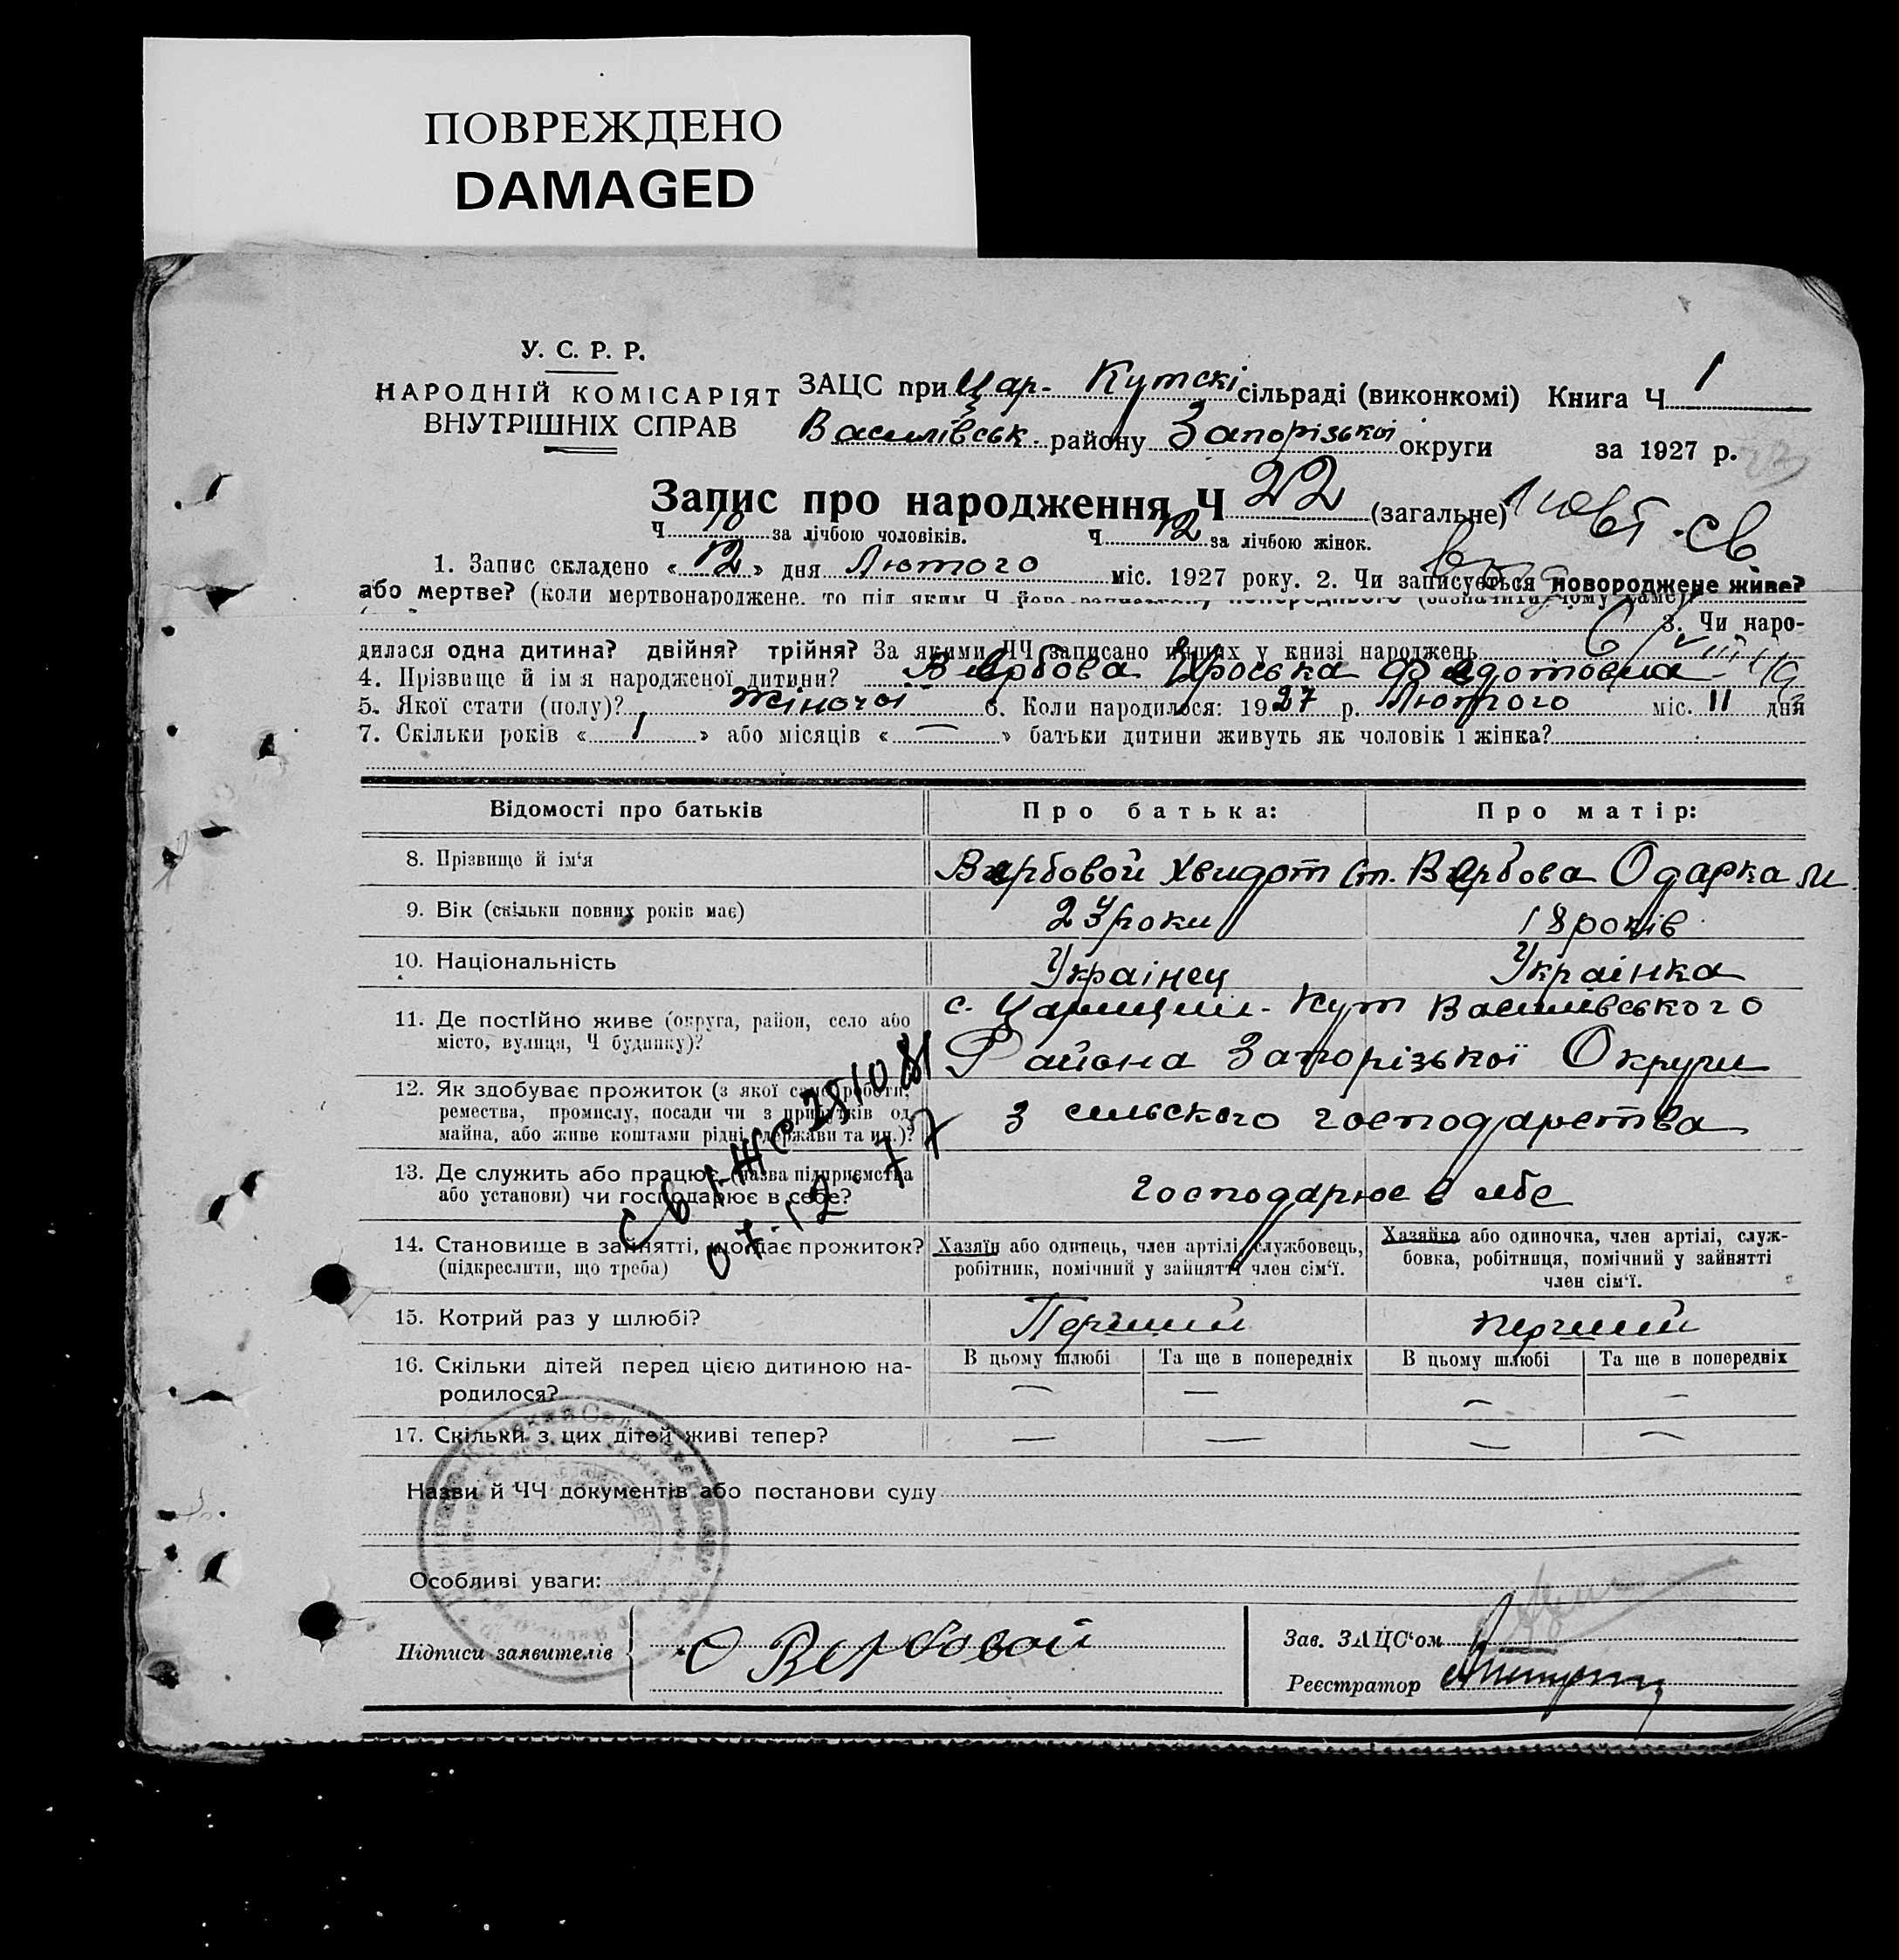 ПОВРЕЖДЕНО
DAMAGED
У. С. Р. Р.
НАРОДНІЙ КОМІСАРІЯТ
ВНУТРІШНІХ СПРАВ
ЗАЦС при Цар- Кутскі сільраді (виконкомі) Книга Ч 1
Василівськ. району Запорізької округи за 1927 р.
Запис про народження Ч 22 (загальне)
Ч 10 за лічбою чоловіків. Ч 12 за лічбою жінок.
1. Запис складено « 12 » дня Лютого міс. 1927 року. 2. Чи записується новороджене живе?
або мертве? (коли мертвонароджене, то під яким Ч його
3. Чи наро-
дилася одна дитина? двійня? трійня? За якими ЧЧ записано инших у книзі народжень
4. Прізвище й ім'я народженої дитини? Вербова Федотовна
5. Якої стати (полу)? Жіночої 6. Коли народилося: 1927 р. Лютого міс. 11 дня
7. Скільки років « 1 » або місяців « — » батьки дитини живуть як чоловік і жінка?
Відомості про батьків Про батька: Про матір:
8. Прізвище й ім'я Вербовой Хвидот Ст. Вербова Одарка М.
9. Вік (скільки повних років має) 23 роки 18 років
10. Національність Українец Українка
11. Де постійно живе (округа, район, село або
місто, вулиця, Ч будинку)?
с. Царицин-Кут Василівського
Района Запорізької Округи
12. Як здобуває прожиток (з якої саме роботи,
ремества, промислу, посади чи з прибутків од
майна, або живе коштами рідні, держави та ин.)?
З сильского господарства
13. Де служить або працює (назва підприємства
або установи) чи господарює в себе?
господарює в себе
14. Становище в зайнятті, що дає прожиток?
(підкреслити, що треба)
Хазяїн або одинець, член артілі, службовець,
робітник, помічний у зайнятті член сім'ї.
Хазяйка або одиночка, член артілі, служ-
бовка, робітниця, помічний у зайнятті
член сім'ї.
15. Котрий раз у шлюбі? Перший перший
16. Скільки дітей перед цією дитиною на-
родилося?
В цьому шлюбі Та ще в попередніх В цьому шлюбі Та ще в попередніх
— — — —
17. Скільки з цих дітей живі тепер? — — — —
Назви й ЧЧ документів або постанови суду
Особливі уваги:
Підписи заявителів Вербовой
Зав. ЗАЦС'ом
Реєстратор